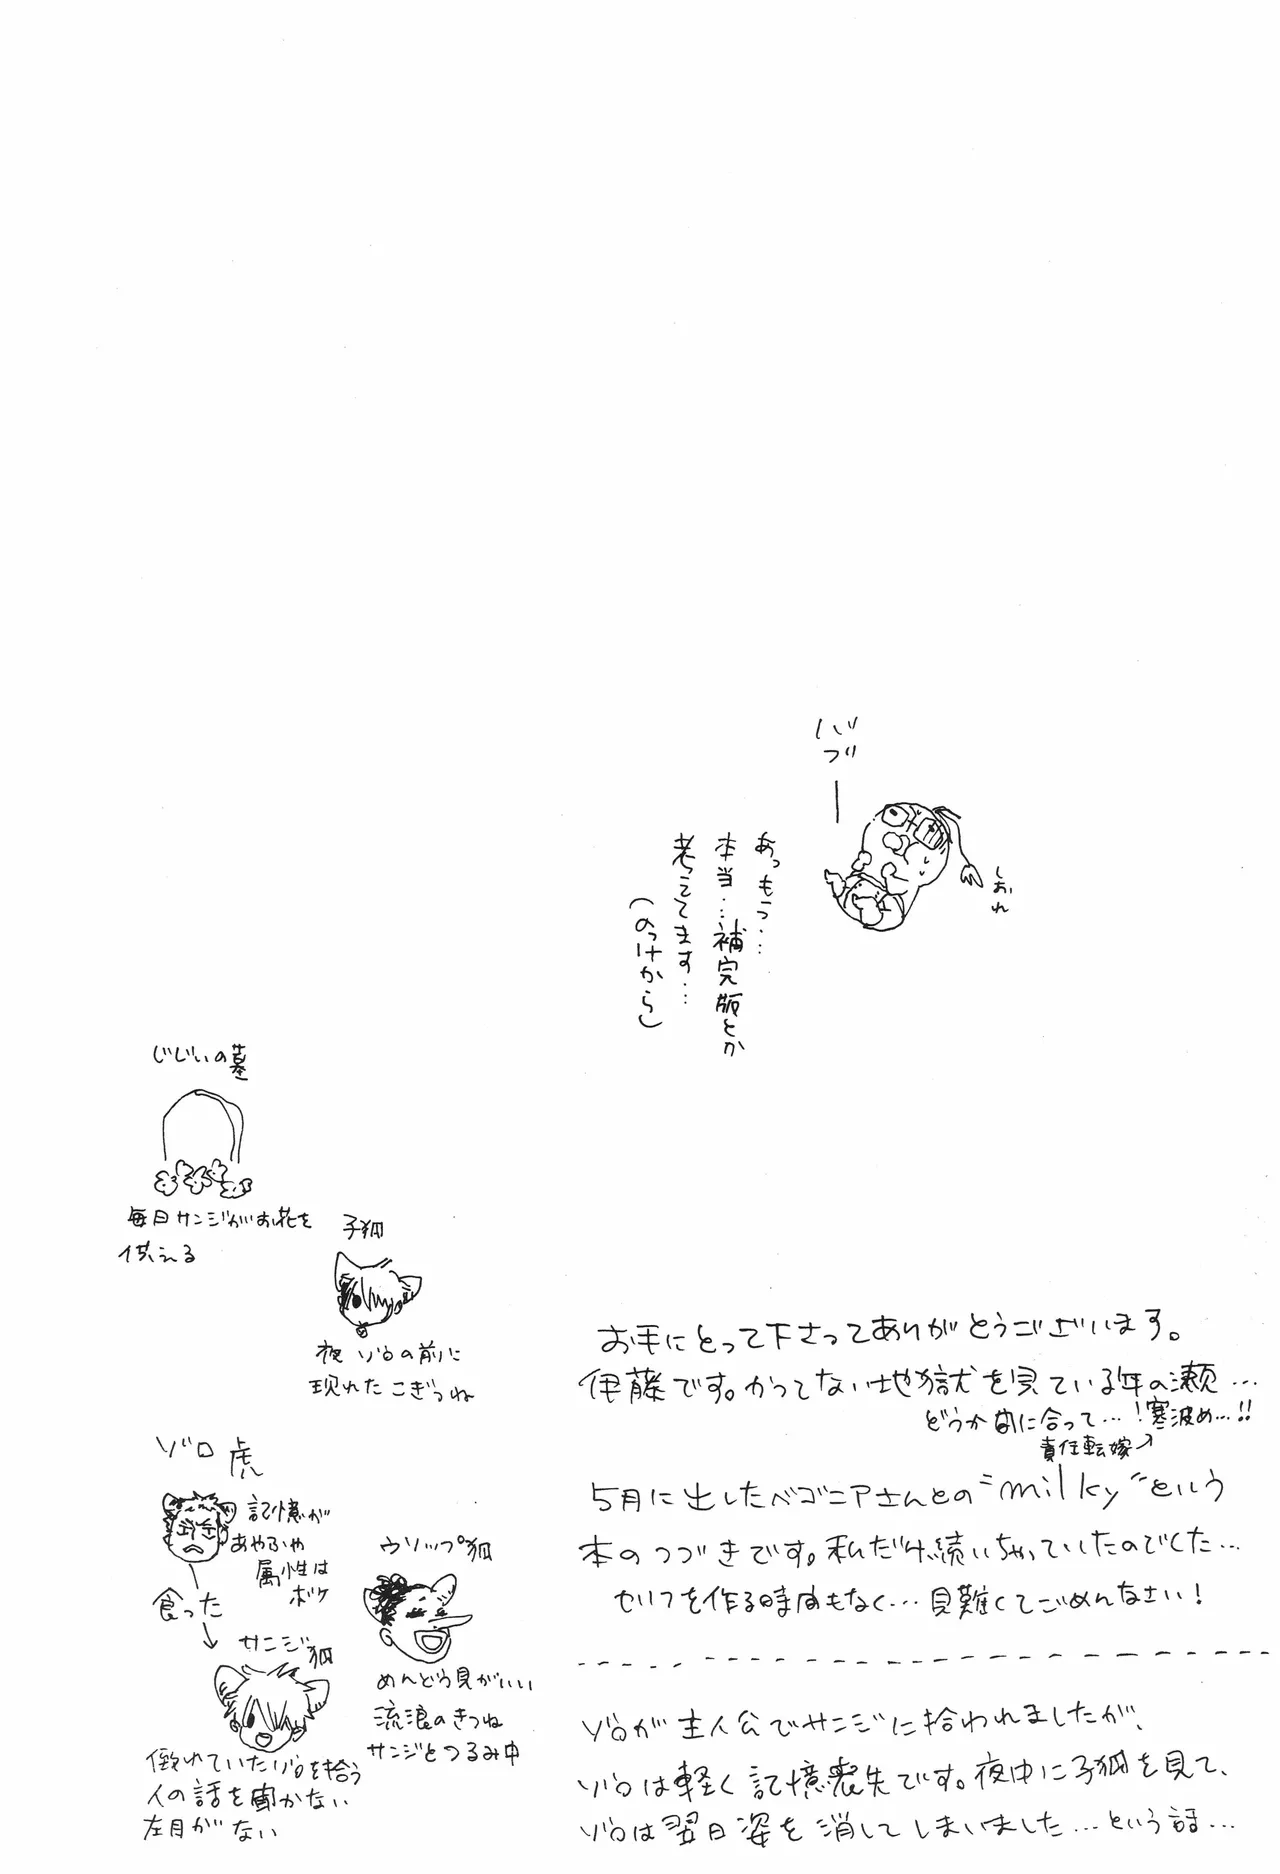 バブ
しおれ
あっもう…
本当…補完版とか
考ってます…
(のっけから)
じじいの墓
毎日サンジがお花を
供える
子狐
夜ゾロの前に
現れたこぎつね
ゾロ虎
記憶が
あやふや
属性は
ボケ
食った
サンジ狐
倒れていたゾロを拾う
人の話を聞かない
左目がない
ウソップ狐
めんどう見がいい
流浪のきつね
サンジとつるみ中
お手にとって下さってありがとうございます。
伊藤です。かつてない地獄を見ている年の瀬…
どうか間に合って…!寒波め…!!
責任転嫁
5月に出したベゴニアさんとの"milky"という
本のつづきです。私だけ続いちゃっていたのでした…
セリフを作る時間もなく…見難くてごめんなさい!
ゾロが主人公でサンジに拾われましたが、
ゾロは軽く記憶喪失です。夜中に子狐を見て、
ゾロは翌日姿を消してしまいました…という話…